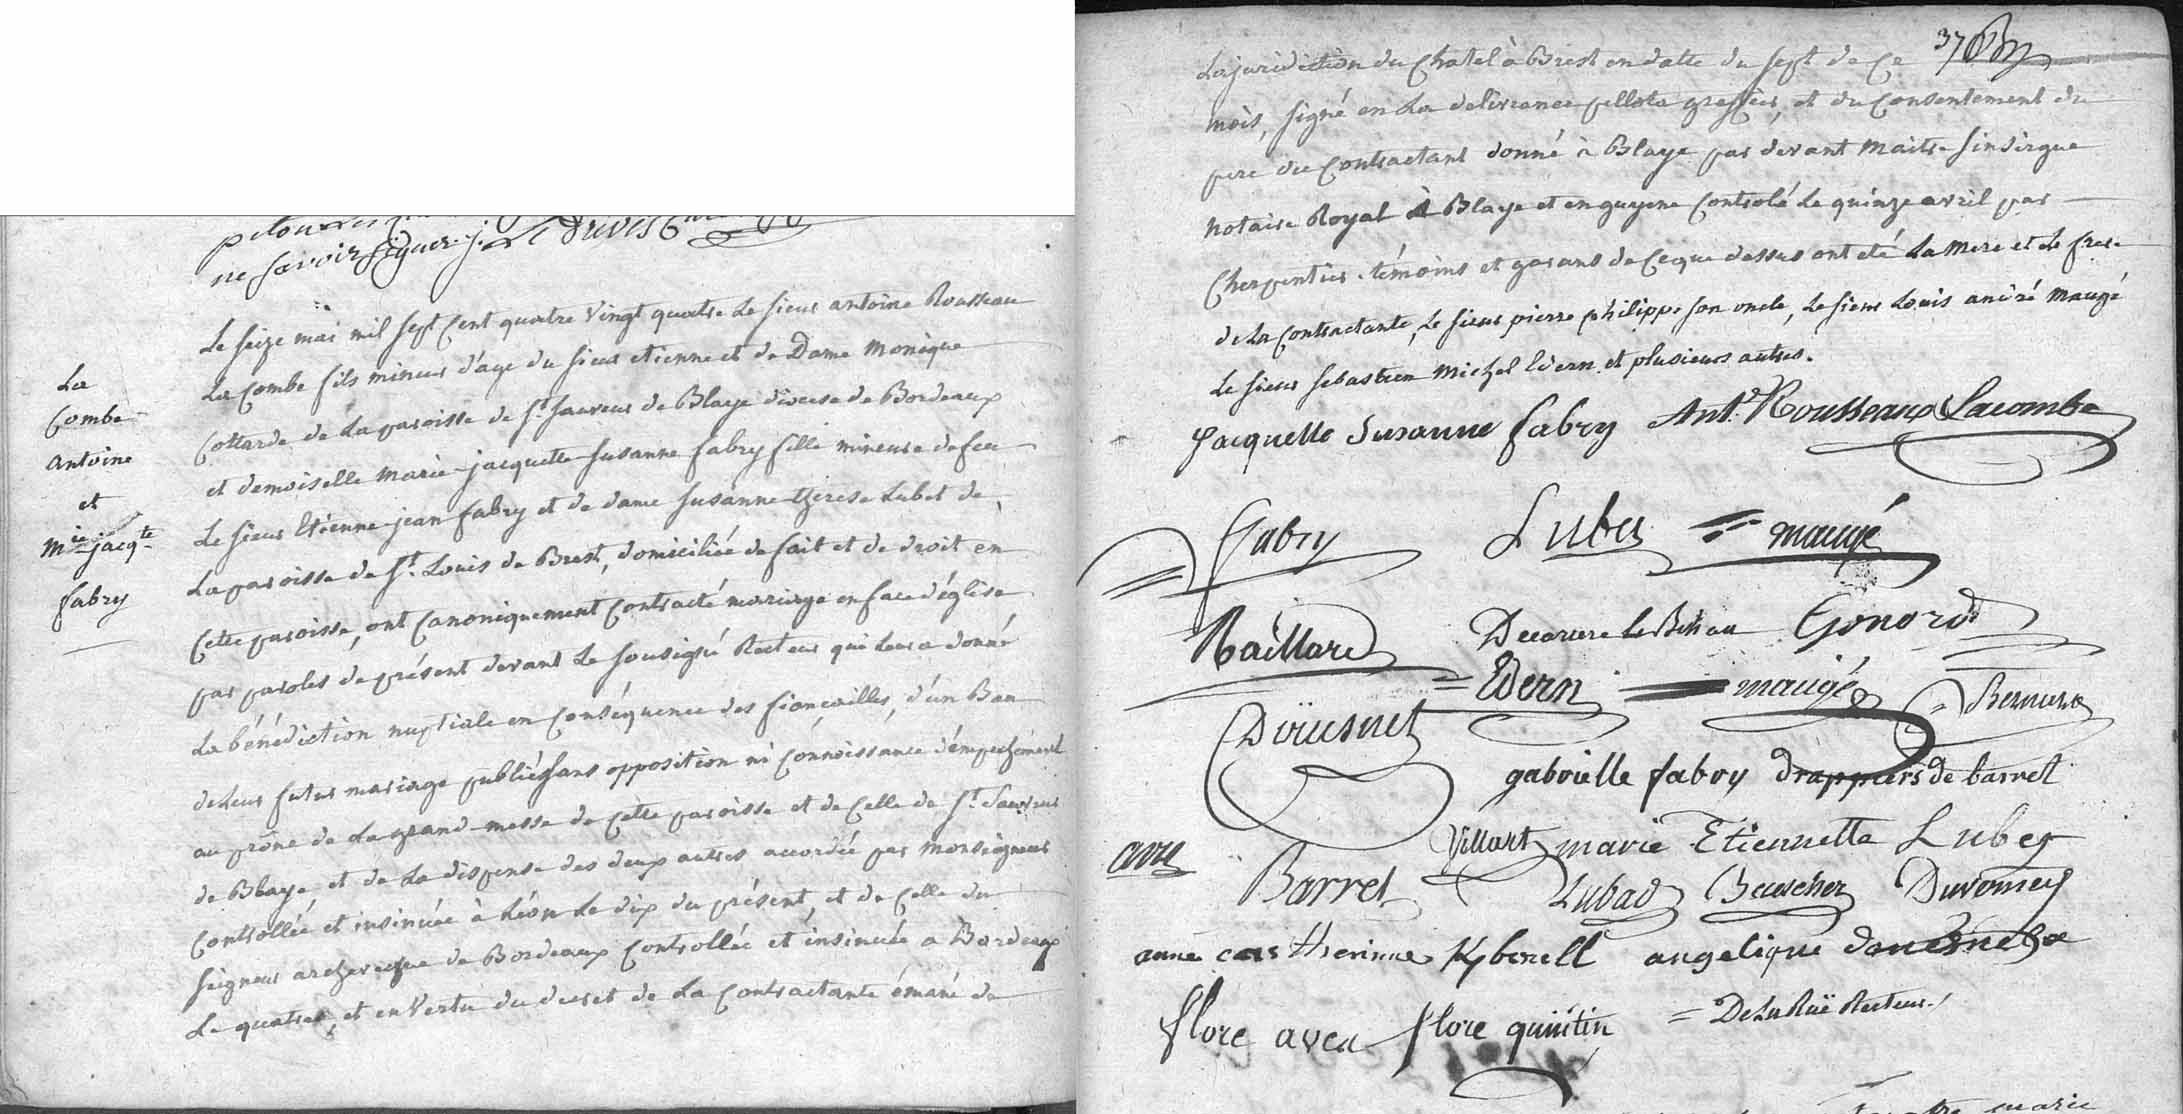 ne savoir signer
Le seize mai mil sept cent quatre vingt quatre le sieur antoine Rousseau
La Combe fils mineur d'age du sieur etienne et de Dame Monique
Cottarde de La paroisse de St Sauveur de Blaye diocese de Bordeaux
et demoiselle marie-jacquette-susanne fabry fille mineure de feu
Le sieur Etienne-jean fabry et de dame susanne-therese Lubet de
La paroisse de St Louis de Brest, domiciliée de fait et de droit en
Cette paroisse, ont canoniquement contracté mariage en face d'église
par paroles de présent devant Le sousigné Recteur qui leur a donné
La bénédiction nuptiale en conséquence des fiançailles, d'un Ban
de leur futur mariage publié sans opposition ni connoissance d'empechement
au prône de La grand-messe de cette paroisse et de celle de St Sauveur
de Blaye, et de La dispense des deux autres accordée par Monseigneur
Controllée et insinuée à Léon Le dix du présent, et de celle du
seigneur archeveque de Bordeaux controllée et insinuée a Bordeaux
Le quatre, et en vertu du decret de La contractante émané de
La
Combe
antoine
et
Mie jacqte
fabry
37
La juridiction du Chatel à Brest en datte du sept de ce
mois, signé en La delivrance pellote greffier, et du consentement du
pere du contractant donné à Blaye par devant Maitre sinsirgue
notaire Royal à Blaye et en guyene controlé Le quinze avril par
Cherpentier. témoins et garans de ce que dessus ont été La mere et Le frere
de La contractante, Le sieur pierre philippe son oncle, Le sieur Louis andré Maugé
Le sieur sebastien Michel Edern et plusieurs autres.
Jacquette Susanne fabry Ant.e Rousseaux Lacombe
Fabry Lubet maugé
Raillard Gonord
Edern maugé Bernard
gabrielle fabry drappiers de barret
Villart marie Etiennette Lubet
Barret Lubad Bauscher Duromey
anne catherinne Kyberell angelique
flore avea flore quintin DeLaRüe Recteur